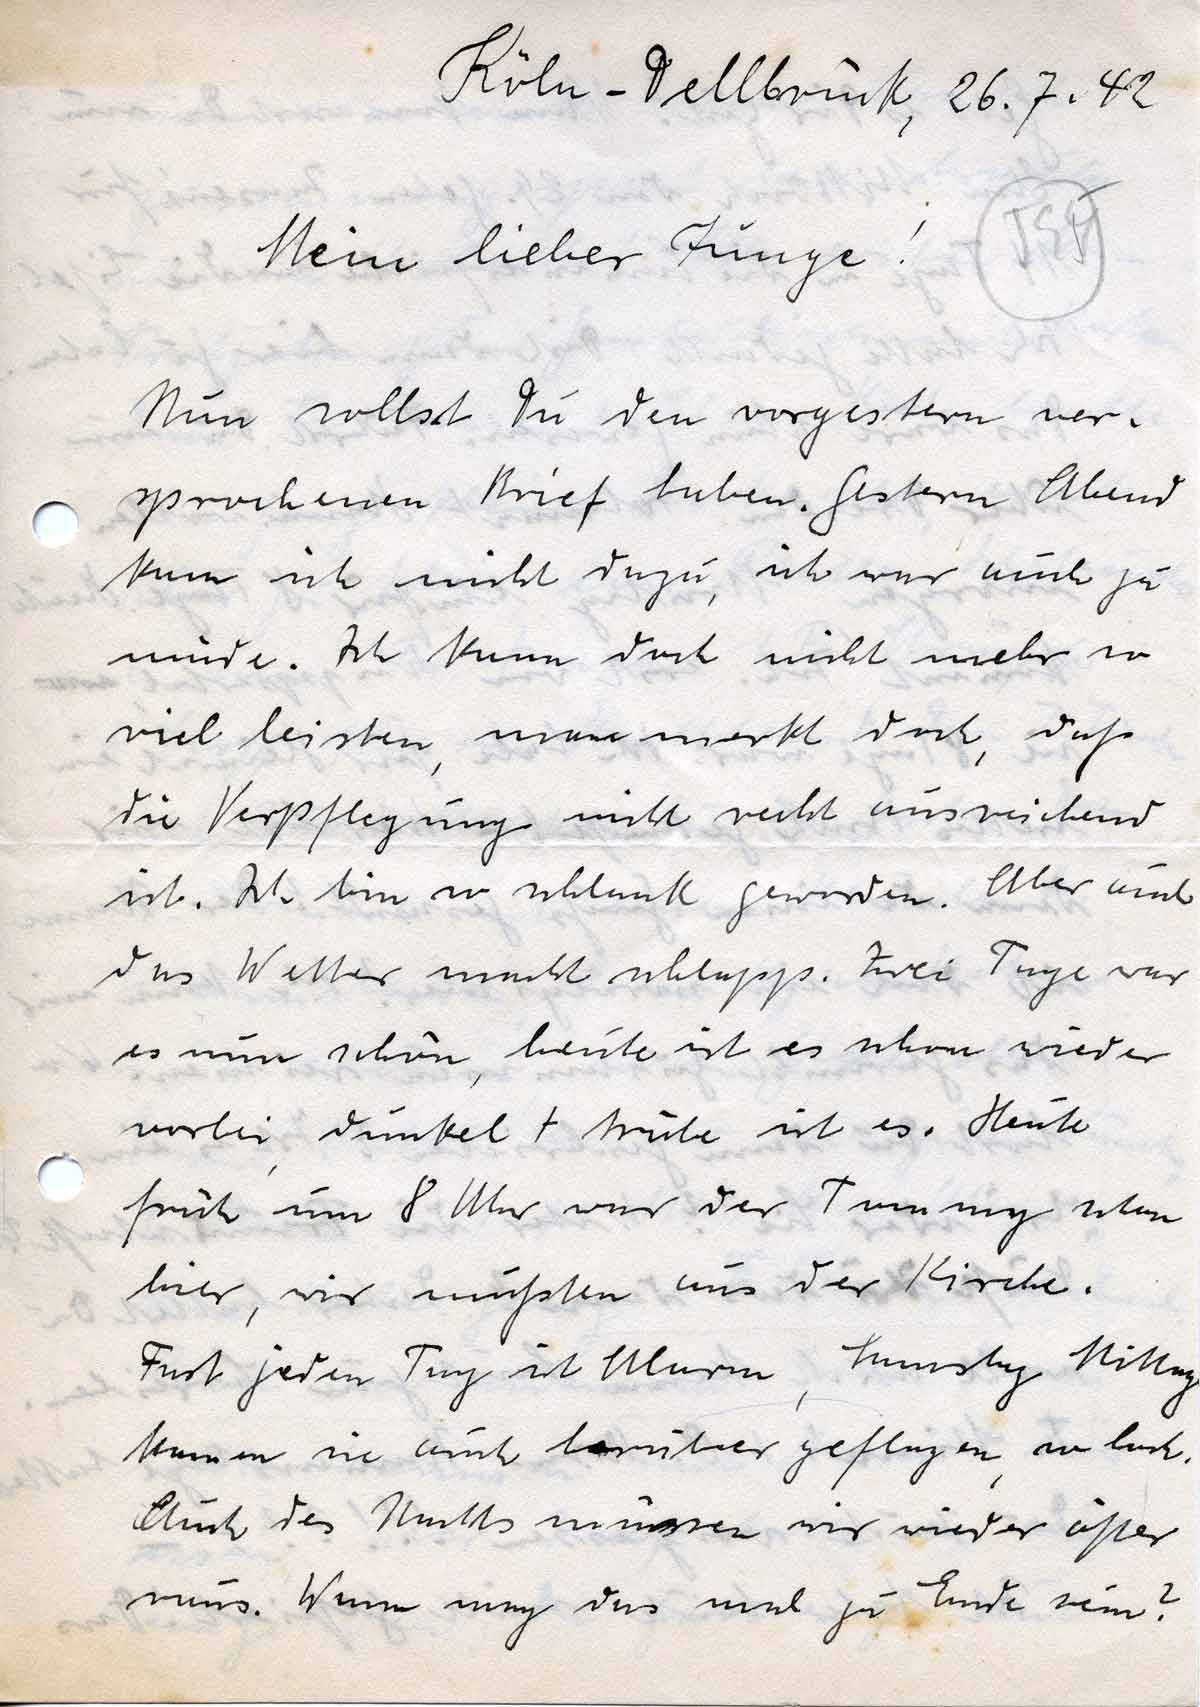 Köln-Dellbrück, 26.7.42
Mein lieber Junge!
Nun sollst Du den vorgestern ver-
sprochenen Brief haben. Gestern Abend
kam ich nicht dazu, ich war auch zu
müde. Ich kann doch nicht mehr so
viel leisten, man merkt doch, daß
die Verpflegung nicht recht ausreichend
ist. Ich bin so schlank geworden. Aber auch
das Wetter macht schlapp. Zwei Tage war
es nun schön, heute ist es schon wieder
vorbei, dunkel + trübe ist es. Heute
früh um 8 Uhr war der Tommy schon
hier, wir mußten aus der Kirche.
Fast jeden Tag ist Alarm, Samstag Mittag
kamen sie auch herüber geflogen, so hoch.
Auch des Nachts müssen wir wieder öfter
raus. Wann mag das mal zu Ende sein?